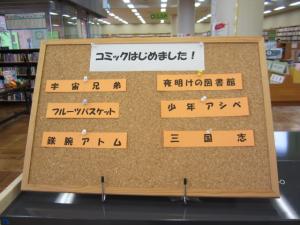 コミックはじめました!
宇宙兄弟
夜明けの図書館
フルーツバスケット
少年アシベ
鉄腕アトム
三国志